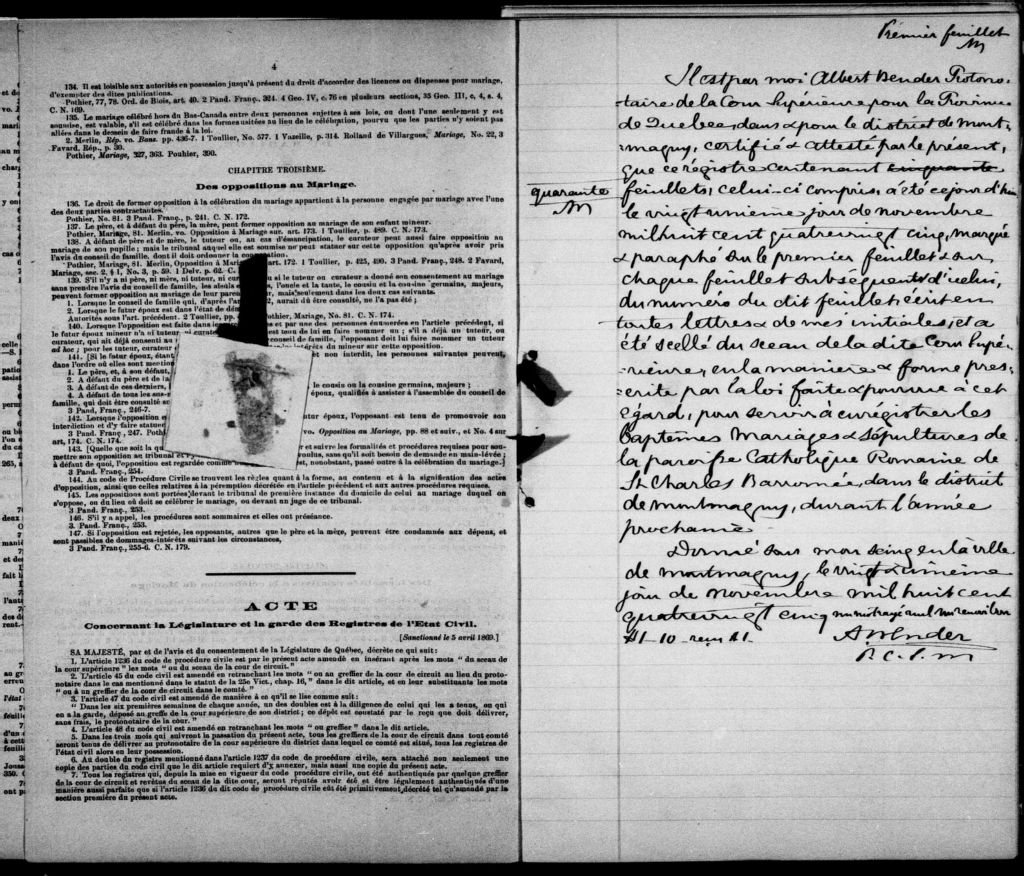 4
134. Il est loisible aux autorités en possession jusqu'à présent du droit d'accorder des licences ou dispenses pour mariage,
d'exempter des dites publications.
Pothier, 77, 78. Ord. de Blois, art. 40. 2 Pand. Franç. 324. 4 Geo. IV, c. 76 en plusieurs sections, 35 Geo. III, c. 4, s. 4,
C. N. 169.
135. Le mariage célébré hors du Bas-Canada entre deux personnes sujettes à ses lois, ou dont l'une seulement y est
soumise, est valable, s'il est célébré dans les formes usitées au lieu de la célébration, pourvu que les parties n'y soient pas
allées dans le dessein de faire fraude à la loi.
2. Merlin, Rép. vo. Bans. pp. 436-7. 1 Toullier, No. 577. 1 Vazeille, p. 314. Rolland de Villargues, Mariage, No. 22, 3
Favard, Rép., p. 30.
Pothier, Mariage, 327, 363. Pouhier, 390.
CHAPITRE TROISIÈME.
Des oppositions au Mariage.
136. Le droit de former opposition à la célébration du mariage appartient à la personne engagée par mariage avec l'une
des deux parties contractantes.
Pothier, No. 81. 3 Pand. Franç., p. 241. C. N. 172.
137. Le père, et à défaut du père, la mère, peut former opposition au mariage de son enfant mineur.
Pothier, Mariage, 81. Merlin, vo. Opposition à Mariage sur. art. 173. 1 Toullier, p. 489. C. N. 173.
138. A défaut de père et de mère, le tuteur ou, au cas d'émancipation, le curateur peut aussi faire opposition au
mariage de son pupille; mais le tribunal auquel elle est soumise ne peut statuer sur cette opposition qu'après avoir pris
l'avis du conseil de famille, dont il doit ordonner la convocation.
Pothier, Mariage, 81. Merlin, Opposition à Mariage art. 172. 1 Toullier, p. 425, 490. 3 Pand. Franç., 248. 2 Favard,
Mariage, sec. 2, § 1, No. 3, p. 59. 1 Delv. p. 62. C.
139. S'il n'y a ni père, ni mère, ni tuteur, ni cu ou si le tuteur ou curateur a donné son consentement au mariage
sans prendre l'avis du conseil de famille, les aïeuls l'oncle et la tante, le cousin et la cousine germains, majeurs,
peuvent former opposition au mariage de leur paren mais seulement dans les deux cas suivants.
1. Lorsque le conseil de famille qui, d'après l'ar 2, aurait dû être consulté, ne l'a pas été;
2. Lorsque le futur époux est dans l'état de dém
Autorités sous l'art. précédent. 2 Toullier, pp. othier, Mariage, No. 81. C. N. 174.
140. Lorsque l'opposition est faite dans et par une des personnes énumérées en l'article précédent, si
le futur époux mineur n'a ni tuteur ni curate est tenu de lui en faire nommer un; s'il a déjà un tuteur, ou
curateur, qui ait déjà consenti au conseil de famille, l'opposant doit lui faire nommer un tuteur
ad hoc; pour les tuteur, curateur intérêts du mineur sur cette opposition.
141. [Si le futur époux, étant et non interdit, les personnes suivantes peuvent,
dans l'ordre où elles sont mention
1. Le père, et, à son défaut,
2. A défaut du père et de la le cousin ou la cousine germains, majeurs;
3. A défaut de ces derniers, époux, qualifiés à assister à l'assemblée du conseil de
4. A défaut de tous les sus-
famille, qui doit être consulté
3 Pand. Franç., 246-7.
142. Lorsque l'opposition e utur époux, l'opposant est tenu de promouvoir son
interdiction et d'y faire statuer
3 Pand. Franç., 247. Poth vo. Opposition au Mariage, pp. 88 et suiv., et No. 4 sur
art, 174. C. N. 174.
143. [Quelque que soit la qu r et suivre les formalités et procédures requises pour sou-
mettre son opposition au tribunal et voulus, sans qu'il soit besoin de demande en main-levée;
à défaut de quoi, l'opposition est regardée comme est, nonobstant, passé outre à la célébration du mariage.]
3 Pand. Franç., 254.
144. Au code de Procédure Civile se trouvent les règles quant à la forme, au contenu et à la signification des actes
d'opposition, ainsi que celles relatives à la péremption décrétée en l'article précédent et aux autres procédures requises.
145. Les oppositions sont portées devant le tribunal de première instance du domicile de celui au mariage duquel on
s'oppose, ou du lieu où doit se célébrer le mariage, ou devant un juge de ce tribunal.
3 Pand. Franç., 253.
146. S'il y a appel, les procédures sont sommaires et elles ont préséance.
3. Pand. Franç., 253.
147. Si l'opposition est rejetée, les opposants, autres que le père et la mère, peuvent être condamnés aux dépens, et
sont passibles de dommages-intérêts suivant les circonstances,
3 Pand. Franç., 255-6. C. N. 179.
ACTE
Concernant la Législature et la garde des Registres de l'Etat Civil.
[Sanctionné le 5 avril 1869.]
SA MAJESTÉ, par et de l'avis et du consentement de la Législature de Québec, décrète ce qui suit:
1. L'article 1236 du code de procédure civile est par le présent acte amendé en insérant après les mots "du sceau de
la cour supérieure" les mots "ou du sceau de la cour de circuit."
2. L'article 45 du code civil est amendé en retranchant les mots "ou au greffier de la cour de circuit au lieu du proto-
notaire dans le cas mentionné dans le statut de la 25e Vict., chap. 16," dans le dit article, et en leur substituants les mots
"ou à un greffier de la cour de circuit dans le comté."
3. l'article 47 du code civil est amendé de manière à ce qu'il se lise comme suit:
"Dans les six premières semaines de chaque année, un des doubles est à la diligence de celui qui les a tenus, on qui
en a la garde, déposé au greffe de la cour supérieure de son district; ce dépôt est constaté par le reçu que doit délivrer,
sans frais, le protonotaire de la cour."
4. L'article 48 du code civil est amendé en retranchant les mots "ou greffier" dans le dit article.
5. Dans les trois mois qui suivront la passation du présent acte, tous les greffiers de la cour de circuit dans tout comté
seront tenus de délivrer au protonotaire de la cour supérieure du district dans lequel ce comté est situé, tous les registres de
l'état civil alors en leur possession.
6. Au double du registre mentionné dans l'article 1237 du code de procédure civile, sera attaché non seulement une
copie des parties du code civil que le dit article requiert d'y annexer, mais aussi une copie du présent acte.
7. Tous les registres qui, depuis la mise en vigueur du code procédure civile, ont été authentiqués par quelque greffier
de la cour de circuit et revêtus du sceau de la dite cour, seront réputés avoir été et être légalement authentiqués d'une
manière aussi parfaite que si l'article 1236 du dit code de procédure civile eût été primitivement décrété tel qu'amendé par la
section première du présent acte.
Prémier feuillet
Il est par moi Albert Bender Protono-
taire de la Cour Supérieure pour la Province
de Quebec, dans & pour le district de Mont-
magny, certifié & attesté par le présent,
que ce régistre contenant cinquante
quarante
feuillets, celui-ci compris, a été ce jour d'hui
le vingt unieme jour de novembre
mil huit cent quatrevingt cinq, marqué
& paraphé sur le premier feuillet & sur
chaque feuillet subséquent d'icelui,
du numéro du dit feuillet, écrit en
toutes lettres & de mes initiales, et a
été scellé du sceau de la dite Cour Supé-
rieure, en la manière & forme pres-
crite par la loi faite & pourvue à cet
égard, pour servir à enrégistrer les
Baptêmes Mariages & Sépultures de
la paroisse Catholique Romaine de
St Charles Barromée, dans le district
de Montmagny, durant l'année
prochaine
Donné sous mon seing en la ville
de Montmagny, le vingt & unieme
jour de novembre mil huit cent
quatrevingt cinq
A Bender
P. C. S. M